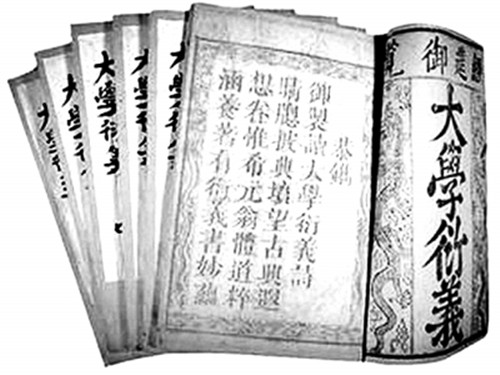 御覽
大學衍義
恭錄
御製讀大學衍義詩
披典墳望古興遐
想眷惟希元翁體道粹
涵養著有衍義書妙
大學衍義
大學
大學
大學
大